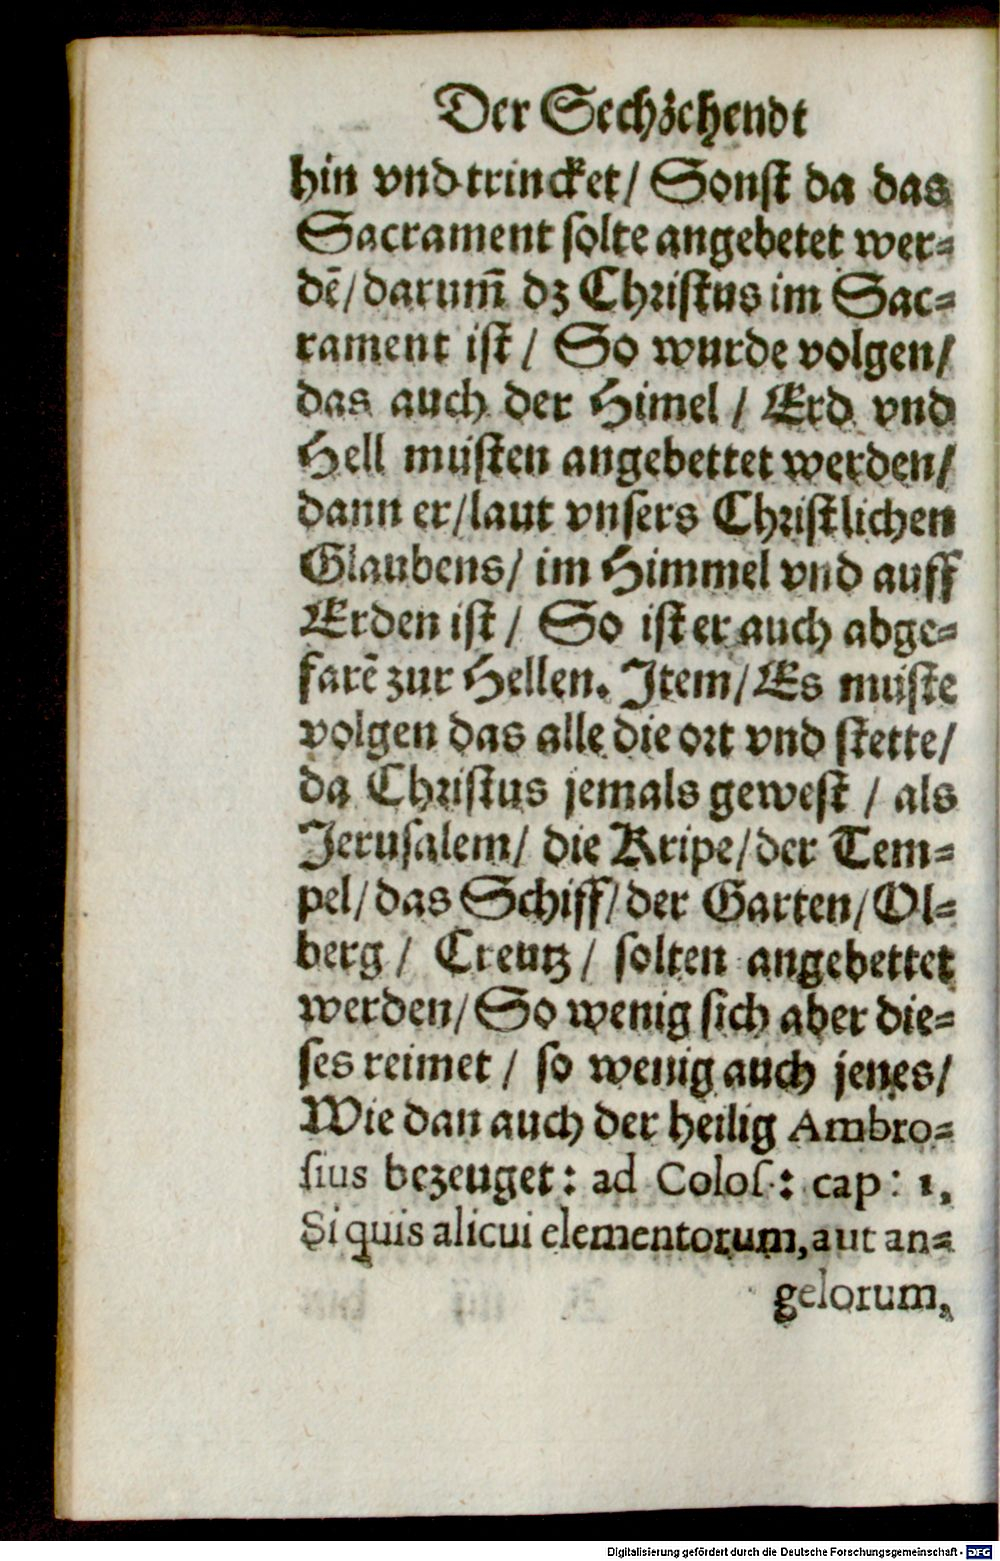 Der Sechzehendt
hin vnd trincket/ Sonſt da das
Sacrament ſolte angebetet wer⸗
dē/ darum̄ dz Chriſtus im Sac⸗
rament iſt / So wurde volgen/
das auch der Himel / Erd vnd
Hell muſten angebettet werden/
dann er/ laut vnſers Chriſtlichen
Glaubens/ im Himmel vnd auff
Erden iſt / So iſt er auch abge⸗
farē zur Hellen. Item/ Es muſte
volgen das alle die ort vnd ſtette/
da Chriſtus jemals geweſt / als
Jeruſalem/ die Kripe/ der Tem⸗
pel/ das Schiff/ der Garten/ Ol⸗
berg / Creutz / ſolten angebettet
werden/ So wenig ſich aber die⸗
ſes reimet / ſo wenig auch jenes/
Wie dan auch der heilig Ambro⸗
ſius bezeuget: ad Coloſ: cap: 1.
Si quis alicui elementorum, aut an⸗
gelorum,
Digitalisierung gefördert durch die Deutsche Forschungsgemeinschaft - DFG